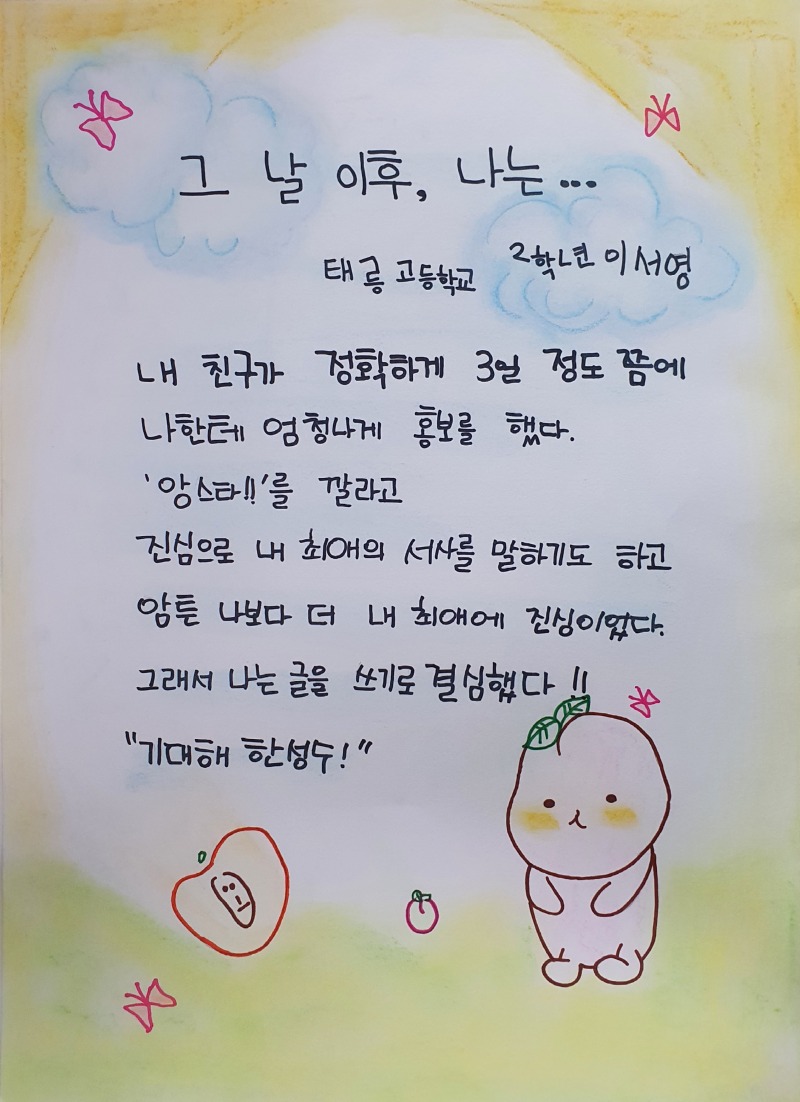 그 날 이후, 나는...
태릉 고등학교 2학년 이서영
내 친구가 정확하게 3일 정도 쯤에
나한테 엄청나게 홍보를 했다.
'앙스타!!'를 깔라고
진심으로 내 최애의 서사를 말하기도 하고
암튼 나보다 더 내 최애에 진심이었다.
그래서 나는 글을 쓰기로 결심했다!!
"기대해 한성수!"